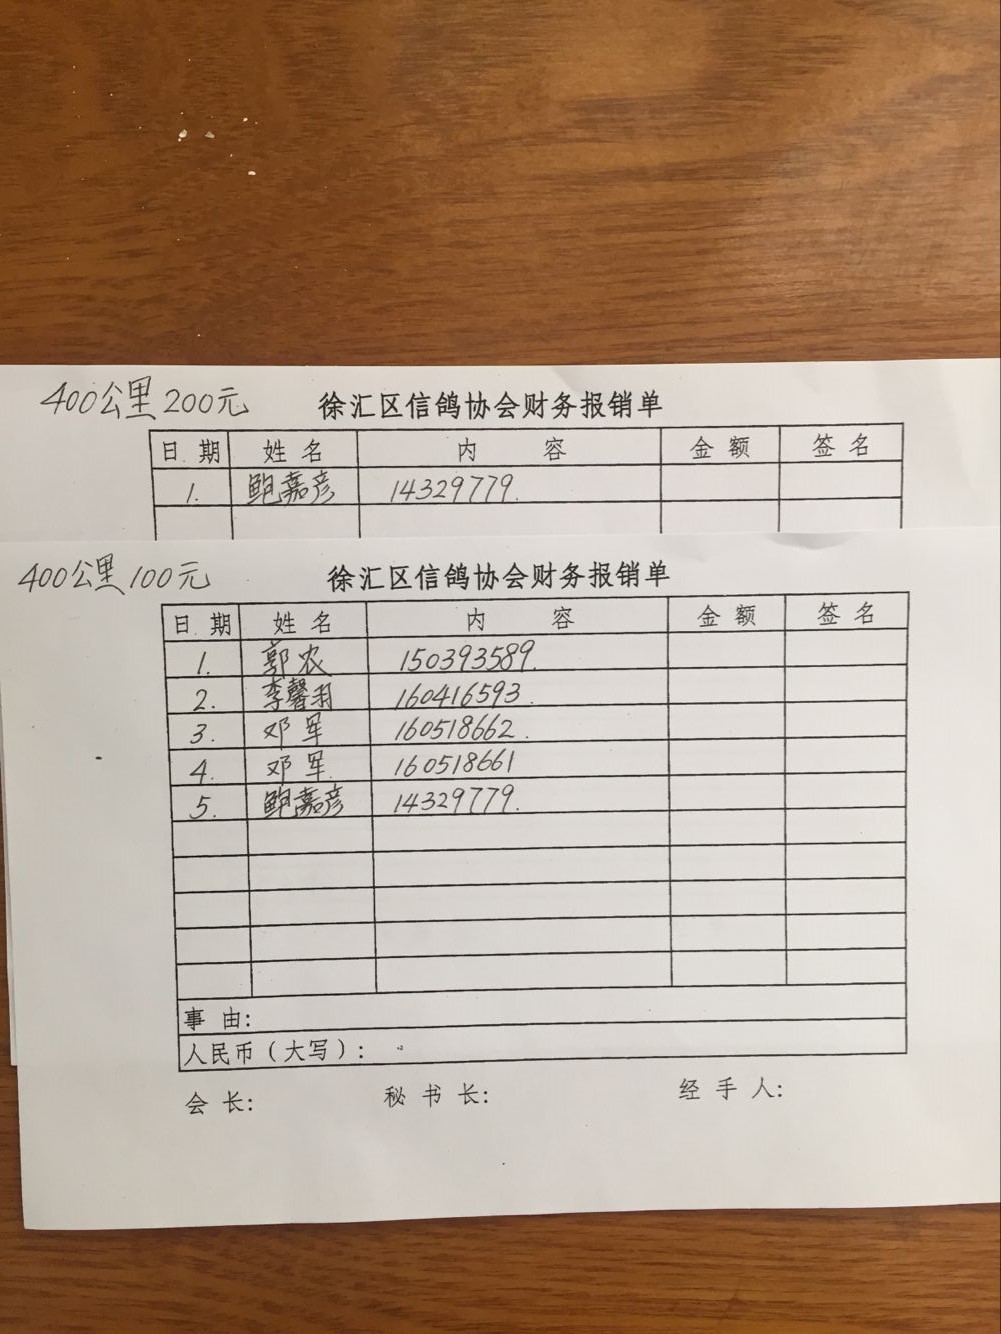 400公里200元 徐汇区信鸽协会财务报销单
日 期 姓 名 内 容 金 额 签 名
1. 鲍嘉彦 14329779.
400公里100元 徐汇区信鸽协会财务报销单
日 期 姓 名 内 容 金 额 签 名
1. 郭农 150393589.
2. 李馨羽 160416593.
3. 邓军 160518662.
4. 邓军. 160518661
5. 鲍嘉彦 14329779.
事 由:
人民币（大写）:
会 长: 秘 书 长: 经 手 人: